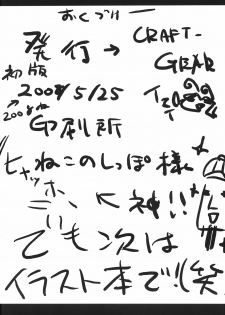 おくづけー
発行→CRAFT-GEAR
初版
2008/5/25
↗2008ね
印刷所
ねこのしっぽ様
ヒャッホーイ
←神!!
でも次は
イラスト本で!(笑